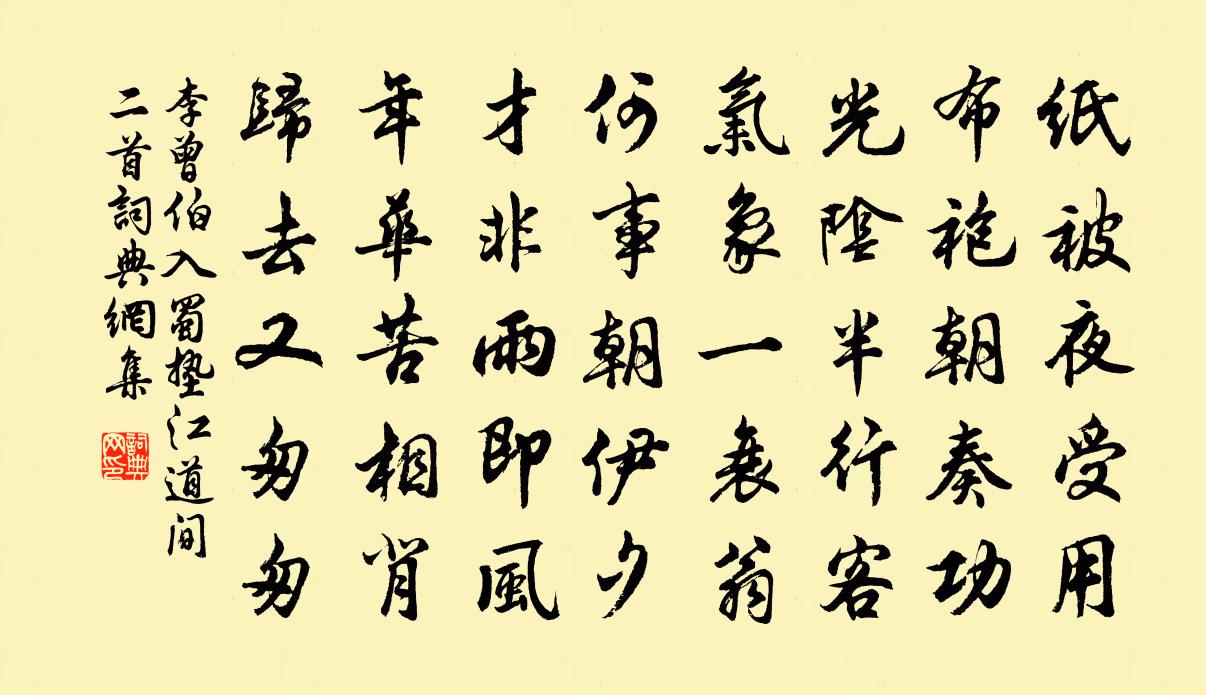 紙被夜受用
布袍朝奏功
光陰半行客
氣象一衰翁
何事朝伊夕
才非雨即風
年華苦相肖
歸去又匆匆
李曾伯入蜀墊江道间
二首詞典網集
詞典
网印